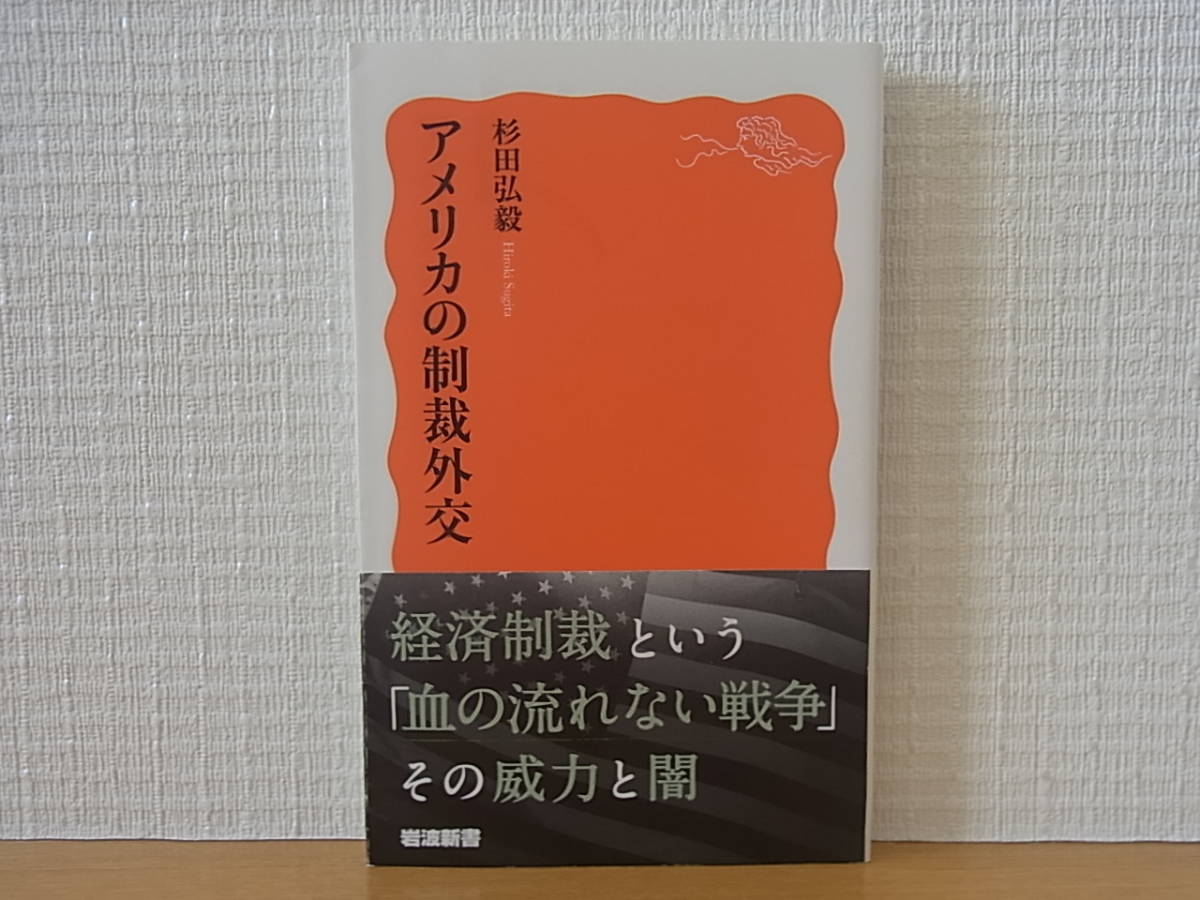 杉田弘毅 Hiroki Sugita
アメリカの制裁外交
経済制裁という
「血の流れない戦争」
その威力と闇
岩波新書